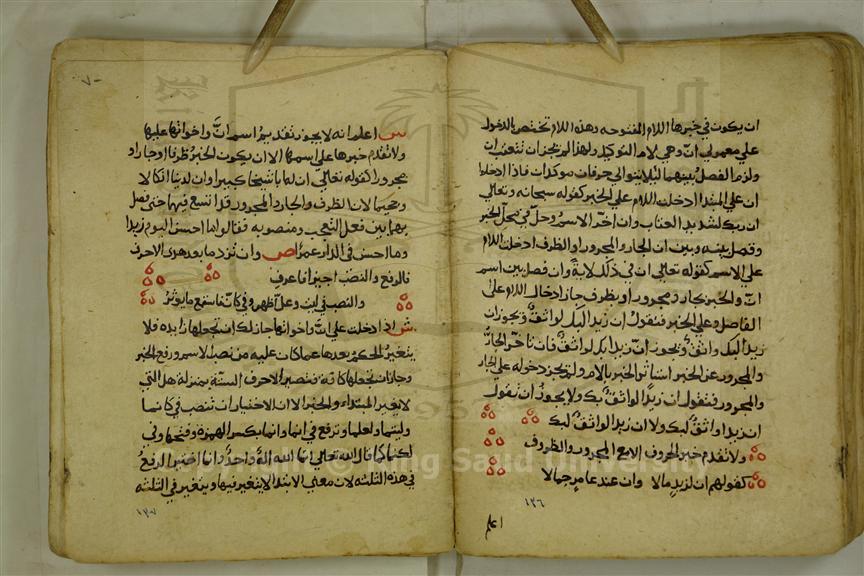 ان يكون في خبرها اللام المفتوحه وهذه اللام تختص بالدخول
علي معمولي انّ وهي لام التوكيد ولهذا لم يجز ان تتعقب ان
ولزم الفصل بينهما ليلا يتوالي حرفان موكدات فاذا ادخلت
ان علي المبتدا ادخلت اللام علي الخبر كقوله سبحانه وتعالي
ان ربك لشديد العقاب وان اخّر الاسم وحل في محل الخبر
وفصل بينه وبين ان الجار والمجرور او الظرف ادخلت اللام
علي الاسم كقوله تعالي ان في ذلك لاية وان فصل بين اسم
انّ والخبر بجار ومجرور او بظرف جاز ادخال اللام علي
الفاصل وعلي الخبر فتقول ان زيدا لبك لواثق ويجوز ان
زيدا لبك واثق ويجوز انّ زيدا بك لواثق فان تاخر الجار
والمجرور عن الخبر اختص الخبر باللام ولم يجز دخوله علي الجار
والمجرور فتقول ان زيدًا لواثق بك ولا يجوز ان تقول
ان زيدا واثق لبك ولا ان زيدا لواثق لبك
ولا تقدم خبر الحروف الا مع المجرور والظروف
كقولهم ان لزيد مالا وان عند عامر جمالا
١٣٦
اعلم
٧٠
ش اعلم انه لا يجوز تقديم اسم انّ واخواتها عليها
ولا تقدم خبرها علي اسمها الا ان يكون الخبر ظرفا او جارا و
مجرورا كقوله تعالي ان له ابا شيخا كبيرا وان لدينا انكالا
وجحيما لان الظرف والجار والمجرور قد اتسع فيها حتي فصل
بهما بين فعل التعجب ومنصوبه فقالوا ما احسن اليوم زيدا
وما احسن في الدار عمرًا ص وان تزد ما بعد هذي الاحرف
فالرفع والنصب اجيزا فاعرف
والنصب في ليت وعل اظهر وفي كان فاستمع ما يوثر
ش اذا دخلت علي انّ واخواتها جاز لك ان تجعلها زايده فلا
يتغير الحكم بعدها عما كان عليه من نصب الاسم ورفع الخبر
وجاز ان تجعلها كافة فتصير الاحرف الستة بمنزلة هل التي
لا يغير المبتداء والخبر الا ان الاختيار ان تنصب في كانما
وليتما ولعلما وترفع في انما وانما بكسر الهمزة وفتحها وفي
لكنما كما قال الله تعالي انما الله اله واحد وانما اختير الرفع
في هذه الثلثه لان معني الابتدا لا يتغير فيها ويتغير في الثلثه
١٣٧